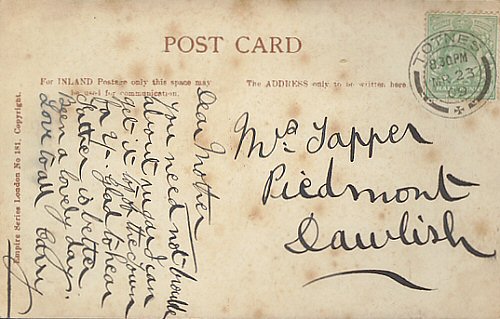 POST CARD
For INLAND Postage only this space may
be used for communication.
The ADDRESS only to be written here.
TOTNES
8.30 PM
23
HALFPENNY
Empire Series London No 181. Copyright.
Dear Mother
You need not trouble
about sugar I can
get it by the town
for y. glad to hear
Father is better
Been a lovely day.
Love to all
Mrs Tapper
Piedmont
Dawlish